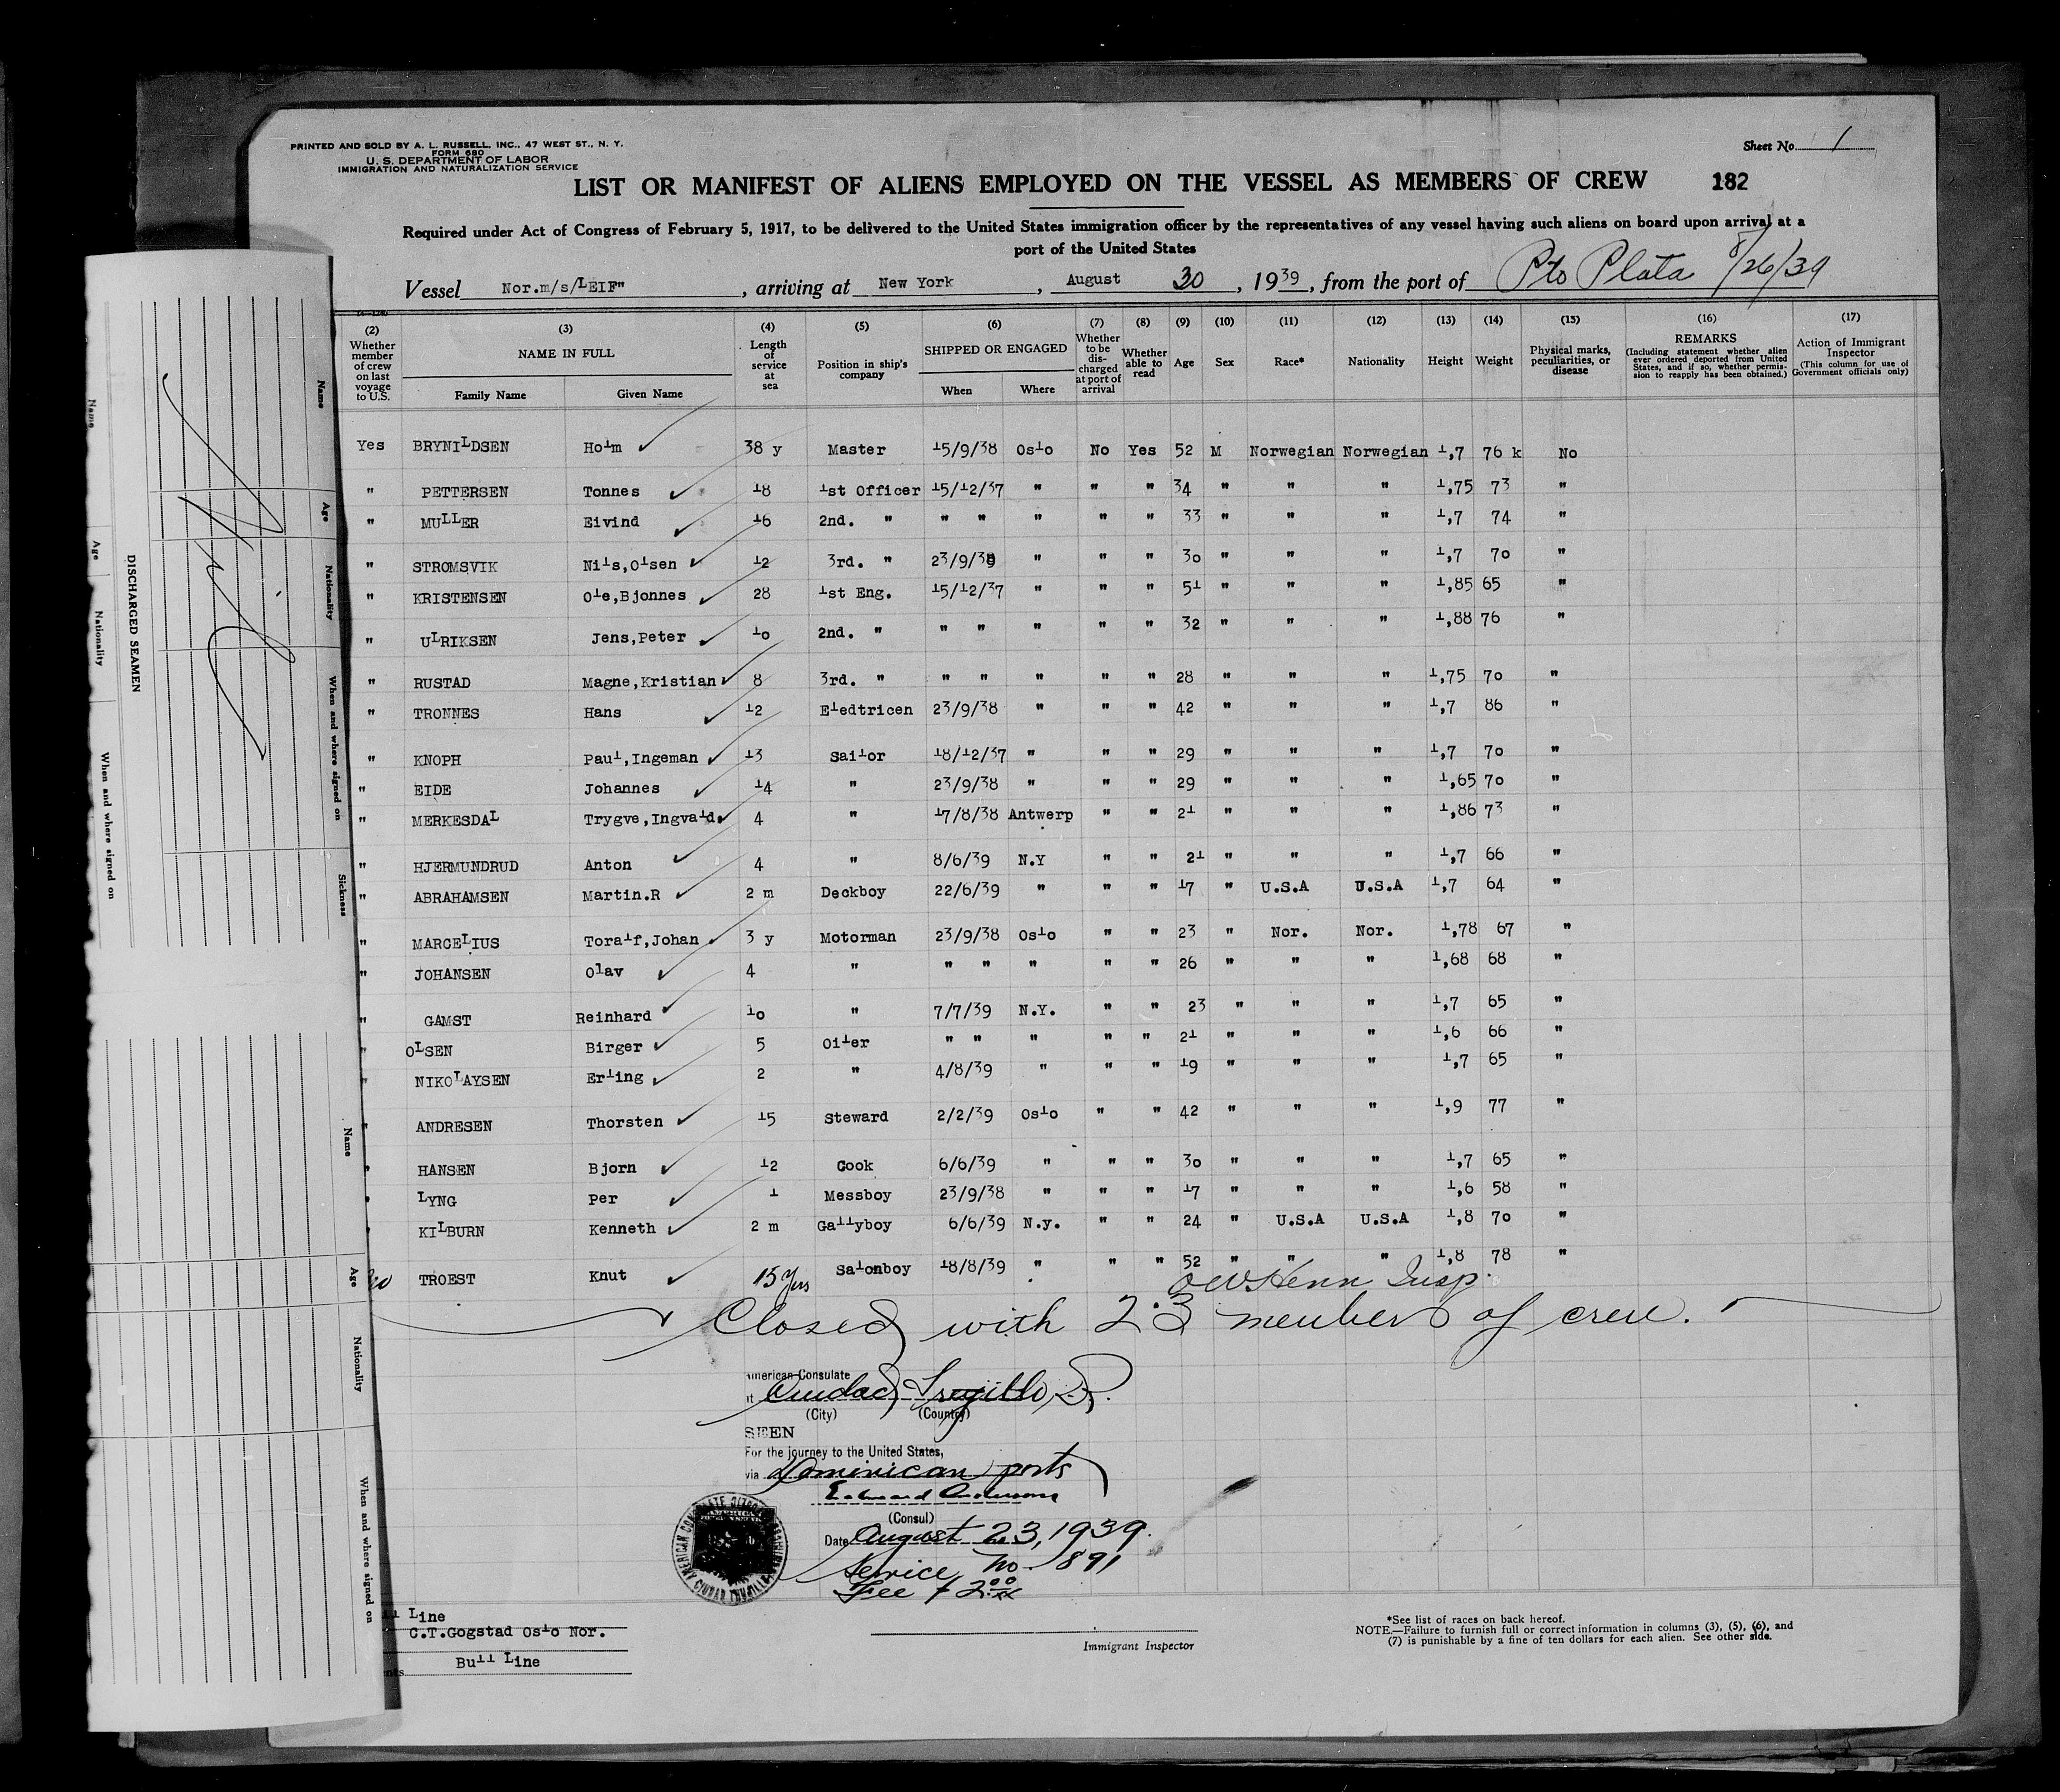 PRINTED AND SOLD BY A. L. RUSSELL, INC., 47 WEST ST., N. Y.
FORM 680
U. S. DEPARTMENT OF LABOR
IMMIGRATION AND NATURALIZATION SERVICE
Sheet No. 1
LIST OR MANIFEST OF ALIENS EMPLOYED ON THE VESSEL AS MEMBERS OF CREW 182
Required under Act of Congress of February 5, 1917, to be delivered to the United States immigration officer by the representatives of any vessel having such aliens on board upon arrival at a
port of the United States
Vessel Nor.m/s/LEIF" , arriving at New York , August 30 , 1939 , from the port of Pto Plata 8/26/39
(2) Whether member of crew on last voyage to U.S.
(3) NAME IN FULL Family Name Given Name
(4) Length of service at sea
(5) Position in ship's company
(6) SHIPPED OR ENGAGED When Where
(7) Whether to be discharged at port of arrival
(8) Whether able to read
(9) Age
(10) Sex
(11) Race*
(12) Nationality
(13) Height
(14) Weight
(15) Physical marks, peculiarities, or disease
(16) REMARKS (Including statement whether alien ever ordered deported from United States, and if so, whether permission to reapply has been obtained.)
(17) Action of Immigrant Inspector (This column for use of Government officials only)
Yes BRYNILDSEN Holm 38 y Master 15/9/38 Oslo No Yes 52 M Norwegian Norwegian 1,7 76 k No
" PETTERSEN Tonnes 18 1st Officer 15/12/37 " " " 34 " " " 1,75 73 "
" MULLER Eivind 16 2nd. " " " " " " 33 " " " 1,7 74 "
" STROMSVIK Nils,Olsen 12 3rd. " 23/9/38 " " " 30 " " " 1,7 70 "
" KRISTENSEN Ole,Bjonnes 28 1st Eng. 15/12/37 " " " 51 " " " 1,85 65 "
" ULRIKSEN Jens,Peter 10 2nd. " " " " " " 32 " " " 1,88 76 "
" RUSTAD Magne,Kristian 8 3rd. " " " " " " 28 " " " 1,75 70 "
" TRONNES Hans 12 Eledtricen 23/9/38 " " " 42 " " " 1,7 86 "
" KNOPH Paul,Ingeman 13 Sailor 18/12/37 " " " 29 " " " 1,7 70 "
" EIDE Johannes 14 " 23/9/38 " " " 29 " " " 1,65 70 "
" MERKESDAL Trygve,Ingvald. 4 " 17/8/38 Antwerp " " 21 " " " 1,86 73 "
" HJERMUNDRUD Anton 4 " 8/6/39 N.Y " " 21 " " " 1,7 66 "
" ABRAHAMSEN Martin.R 2 m Deckboy 22/6/39 " " " 17 " U.S.A U.S.A 1,7 64 "
" MARCELIUS Toralf,Johan 3 y Motorman 23/9/38 Oslo " " 23 " Nor. Nor. 1,78 67 "
" JOHANSEN Olav 4 " " " " " " 26 " " " 1,68 68 "
" GAMST Reinhard 10 " 7/7/39 N.Y. " " 23 " " " 1,7 65 "
" OLSEN Birger 5 Oiler " " " " " 21 " " " 1,6 66 "
" NIKOLAYSEN Erling 2 " 4/8/39 " " " 19 " " " 1,7 65 "
" ANDRESEN Thorsten 15 Steward 2/2/39 Oslo " " 42 " " " 1,9 77 "
" HANSEN Bjorn 12 Cook 6/6/39 " " " 30 " " " 1,7 65 "
" LYNG Per 1 Messboy 23/9/38 " " " 17 " " " 1,6 58 "
" KILBURN Kenneth 2 m Gallyboy 6/6/39 N.y. " " 24 " U.S.A U.S.A 1,8 70 "
TROEST Knut 15 yrs Salonboy 18/8/39 " " " 52 " " " 1,8 78 "
Insp.
Closed with 23 members of crew.
American Consulate
at Ciudad Trujillo, D.R.
(City) (Country)
SEEN
For the journey to the United States,
via Dominican ports
(Consul)
Date August 23, 1939.
Service No. 891
Fee $ 2.00
Line
C.T.Gogstad Oslo Nor.
Bull Line
Immigrant Inspector
*See list of races on back hereof.
NOTE.—Failure to furnish full or correct information in columns (3), (5), (6), and
(7) is punishable by a fine of ten dollars for each alien. See other side.
DISCHARGED SEAMEN
Name Age Nationality When and where signed on
Name Age Nationality When and where signed on Sickness
Name Age Nationality When and where signed on